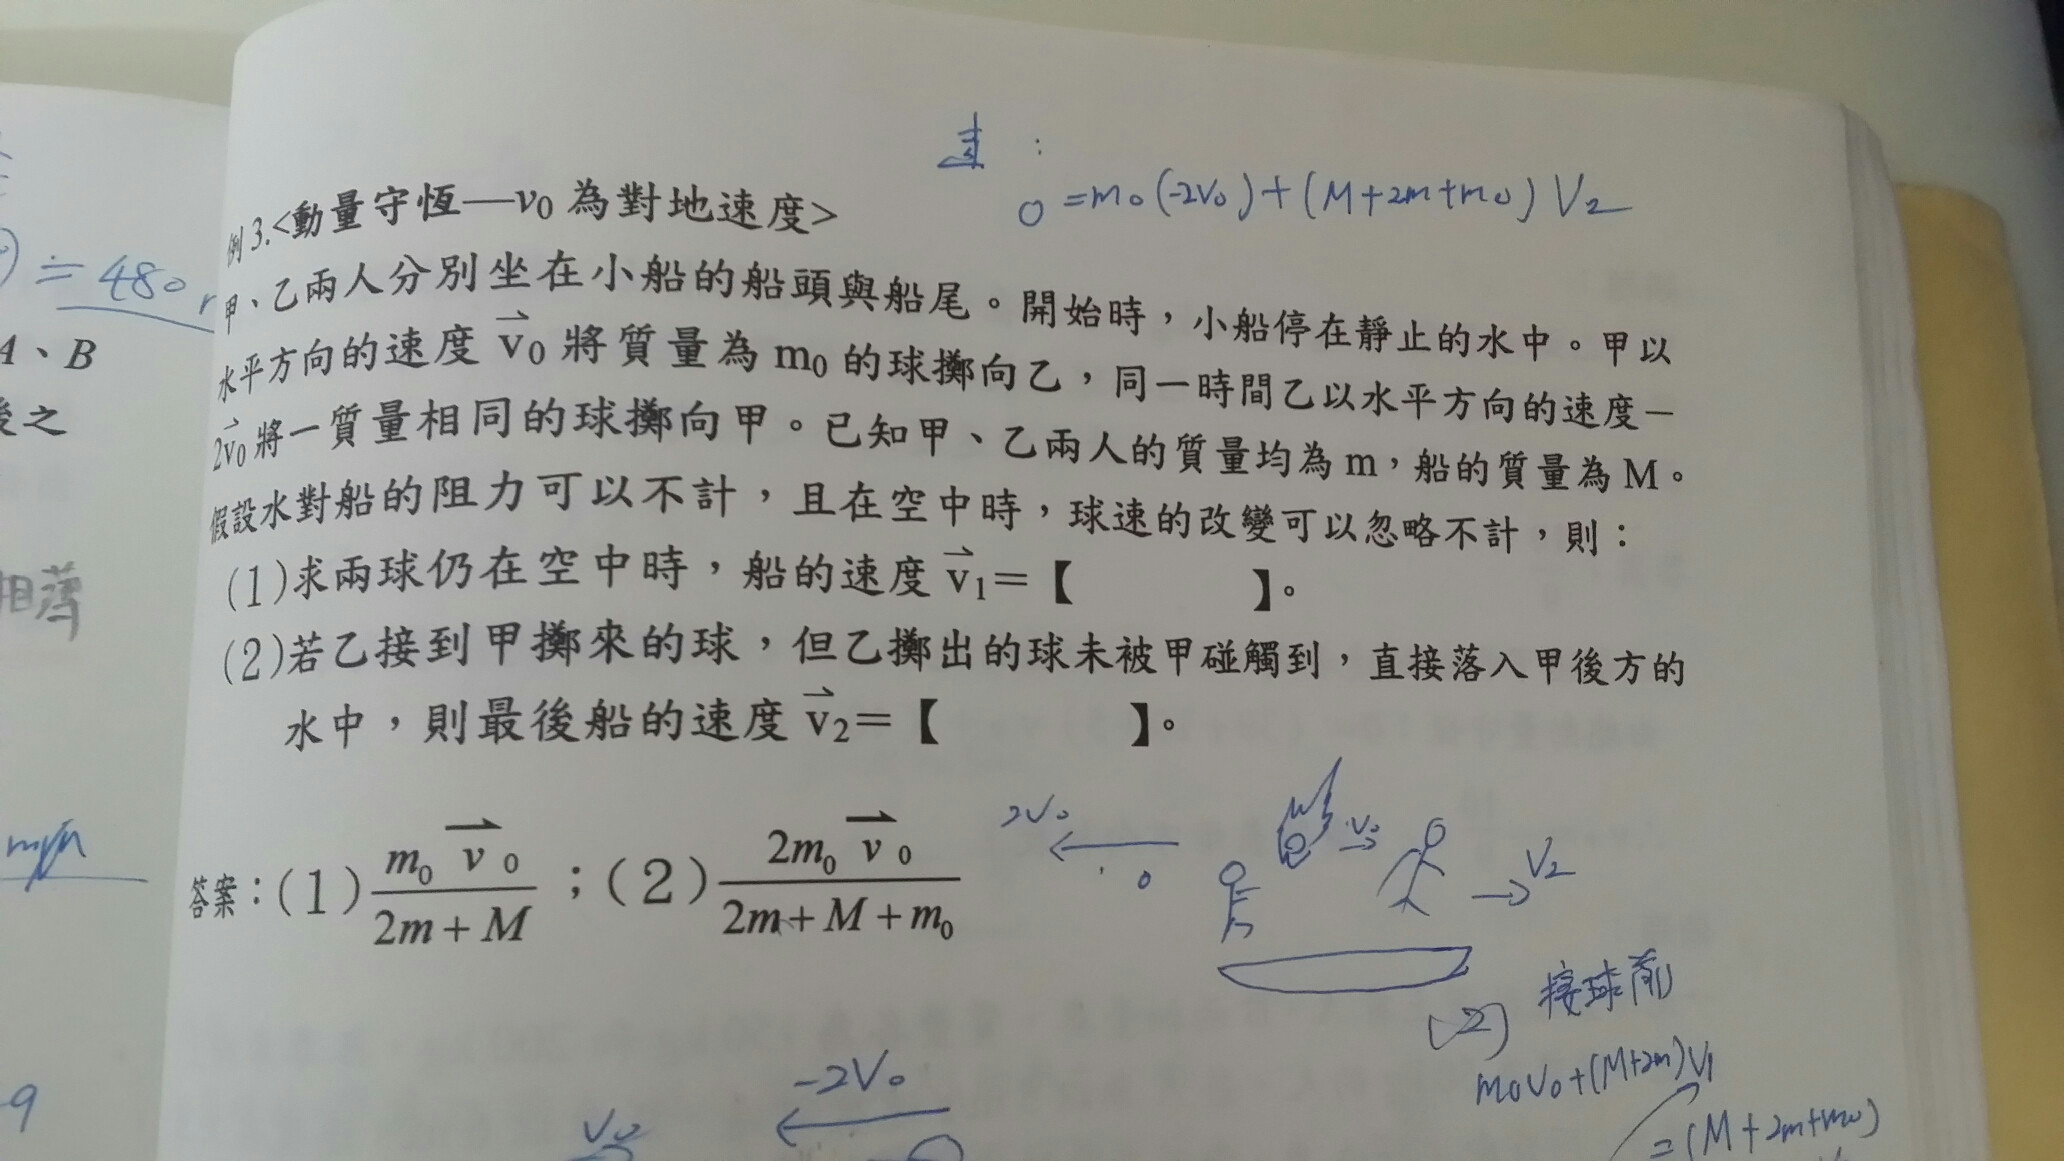 例3.<動量守恆—v₀為對地速度>
0 = m₀(-2V₀)+(M+2m+m₀) V₂
≒ 480
甲、乙兩人分別坐在小船的船頭與船尾。開始時，小船停在靜止的水中。甲以
水平方向的速度 v⃗₀ 將質量為 m₀ 的球擲向乙，同一時間乙以水平方向的速度－
2v⃗₀ 將一質量相同的球擲向甲。已知甲、乙兩人的質量均為 m，船的質量為 M。
假設水對船的阻力可以不計，且在空中時，球速的改變可以忽略不計，則：
(1)求兩球仍在空中時，船的速度 v⃗₁＝【 】。
(2)若乙接到甲擲來的球，但乙擲出的球未被甲碰觸到，直接落入甲後方的
水中，則最後船的速度 v⃗₂＝【 】。
A、B
後之
答案：(1) m₀v⃗₀ / (2m + M) ；(2) 2m₀v⃗₀ / (2m + M + m₀)
2V₀
V₀
V₂
(2) 接球前
m₀V₀+(M+2m)V₁
=(M+2m+m₀)
-2V₀
V₀
-9